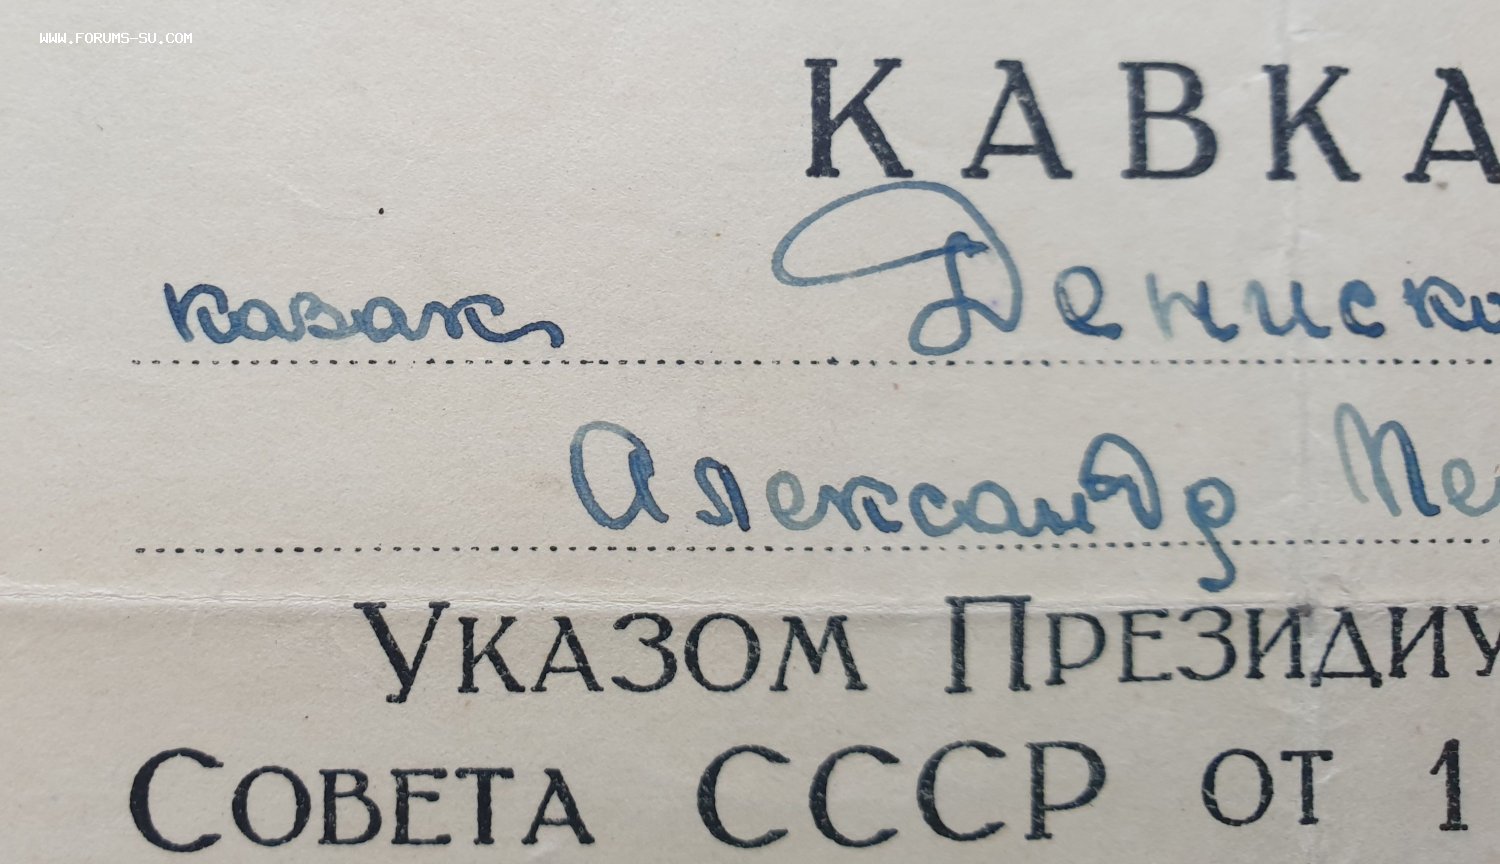 WWW.FORUMS-SU.COM
КАВКА
казак Дениско
Александр Пе
Указом Президиу
Совета СССР от 1